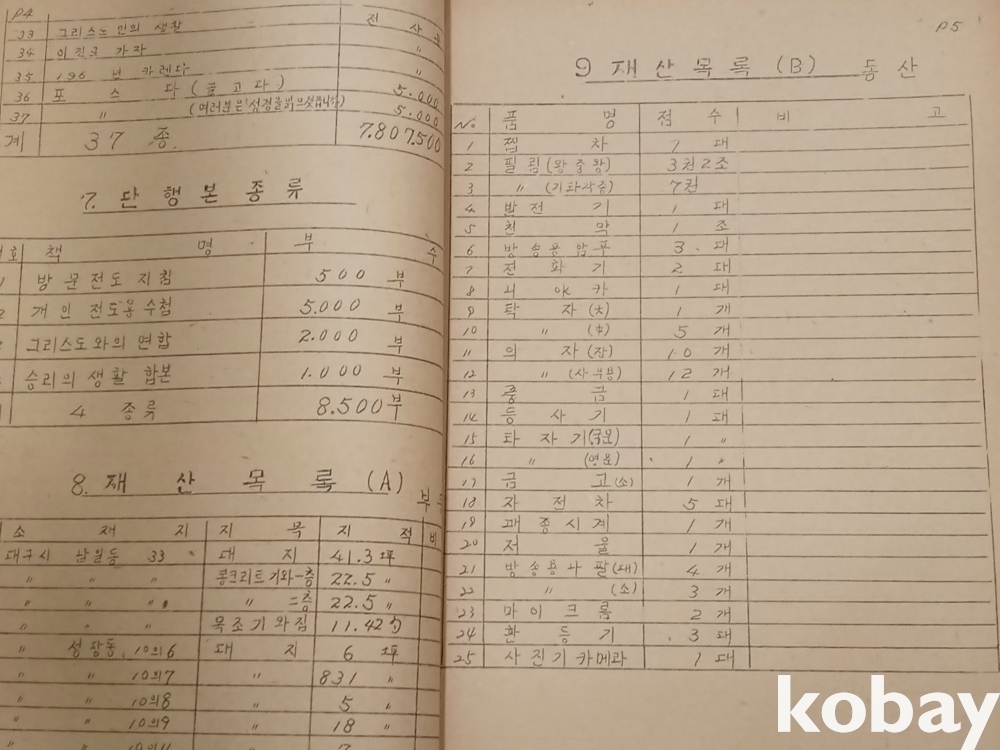 P4
33 그리스도인의 생활 전사국
34 이진로 가자 〃
35 196 년 카렌다 〃
36 포스타 (골고다) 5.000
37 〃 (여러분은 성경을 읽으섯읍니까) 5.000
계 37 종 7.807.500
7. 단행본종류
책 명 부 수
방문전도지침 500 부
개인전도용수첩 5.000 부
그리스도와의 연합 2.000 부
승리의 생활 합본 1.000 부
4 종류 8.500부
8. 재산목록 (A)
소재지 지목 지적 비
대구시 남일동 33 대지 41.3坪
〃 〃 〃 콩크리트기와一층 22.5 〃
〃 〃 〃 〃 二층 22.5 〃
〃 〃 〃 목조기와집 11.42
〃 성당동 10의6 대지 6 坪
〃 〃 10의7 〃 831 〃
〃 〃 10의8 〃 5 〃
〃 〃 10의9 〃 18 〃
P5
9 재산목록 (B) 동산
No. 품명 점수 비고
1 찝차 1 대
2 필림(왕중왕) 3권2조
3 〃 (기타각종) 7권
4 발전기 1 대
5 천막 1 조
6 방송용암푸 3 대
7 전화기 2 대
8 니야카 1 대
9 탁자 (大) 1 개
10 〃 (中) 5 개
11 의자 (장) 10 개
12 〃 (사무용) 12 개
13 풍금 1 대
14 등사기 1 대
15 타자기(국문) 1 〃
16 〃 (영문) 1 〃
17 금고(소) 1 개
18 자전차 5 대
19 괘종시계 1 개
20 저울 1 개
21 방송용나팔(대) 4 개
22 〃 (소) 3 개
23 마이크롬 2 개
24 환등기 3 대
25 사진기카메라 1 대
kobay